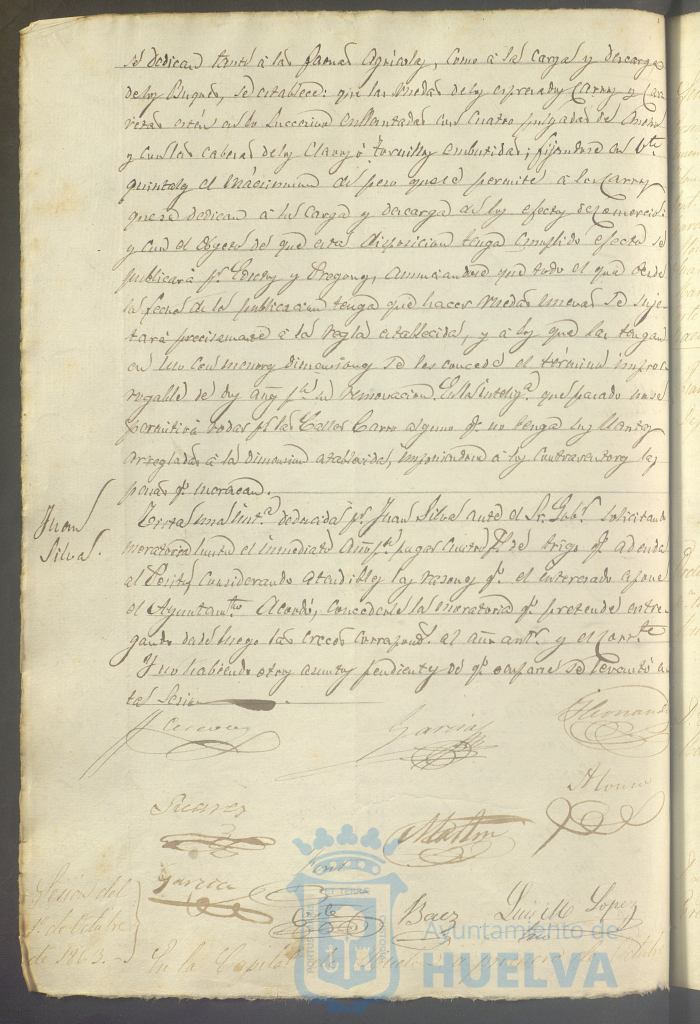 se dedican tanto á las faenas Agrícolas, como á las cargas y descargas
de los Buques, se establece: que las Ruedas de los espresados Carros y Car
retas estén en lo succesivo enllantadas con cuatro pulgadas de
y con las cabezas de los Clavos ó tornillos embutidas; fijandose en
quintales el máccimum de peso que se permite á los Carros
que se dedican á la Carga y descarga de los efectos de comercio:
y con el objeto de que esta disposicion tenga cumplido efecto se
publicará pr. Edictos y Pregones, anunciandose que todo el que desde
la fecha de la publicacion tenga que hacer Ruedas nuevas se suje
tará precisamente á la regla establecida, y á los que las tengan
en uso con menores dimensiones se les concede el término impror
rogable de dos años pa. su renovacion. En la inteliga. que pasado no se
permitirá rodar pr. las Calles Carro alguno qe. no tenga sus llantas
arregladas á la dimension establecida, imponiendose á los contraventores las
penas qe. merezcan.
Juan
Silva.
Vista una inst.a deducida pr. Juan Silva ante el Sr. Gobr. solicitando
moratoria hasta el inmediato Año pa. pagar cuatro fs. de trigo qe. adeuda
al Pósito, Considerando atendibles las razones qe. el interesado espone
el Ayuntamto. Acordó, concederle la moratoria qe. pretende entre
gando desde luego las creces correspondts. al año antr. y el corrte.
Y no habiendo otros asuntos pendientes de qe. ocuparse se levantó es
ta Sesion
García
Hernandez
Alonso
Suarez
Martin
Garcia
Baez
Luis M Lopez
Sesion del
1º. de Octubre
de 1863.
En la Capital de Huelva en primero de Octubre
Ayuntamiento de
HUELVA